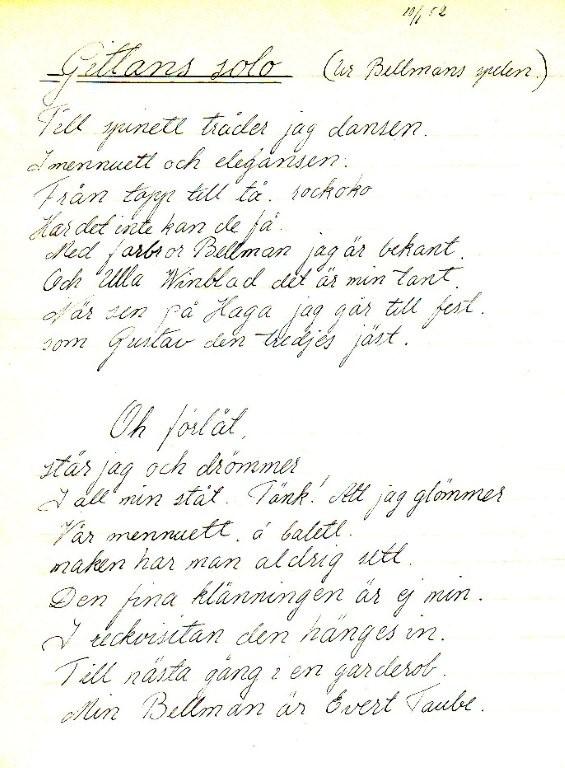 10/1 52
Gittans solo (Ur Bellmans spelen.)
Till spinett tråder jag dansen.
I mennuett och elegansen.
Från topp till tå. rockoko
Har det inte kan de få.
Med farbror Bellman jag är bekant.
Och Ulla Winblad det är min tant.
När sen på Haga jag går till fest.
som Gustav den tredjes jäst.
Oh förlåt,
står jag och drömmer
I all min ståt. Tänk! Att jag glömmer
Vår mennuett. å balett.
maken har man aldrig sett.
Den fina klänningen är ej min.
I reckvisitan den hänges in.
Till nästa gång i en garderob.
Min Bellman är Evert Taube.